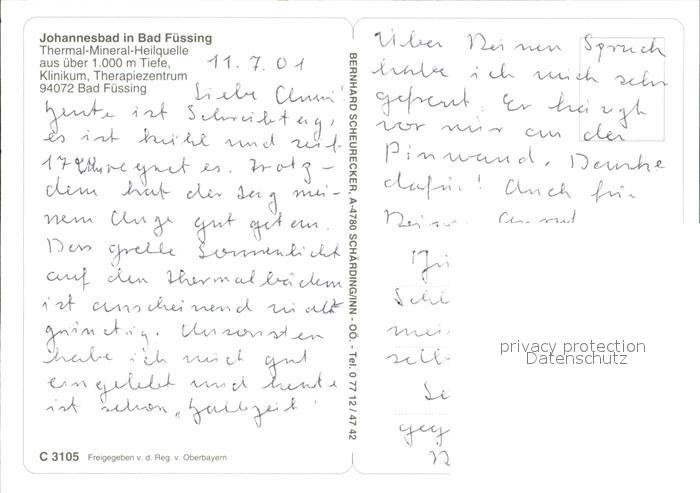 Johannesbad in Bad Füssing
Thermal-Mineral-Heilquelle
aus über 1.000 m Tiefe,
Klinikum, Therapiezentrum
94072 Bad Füssing
11.7.01
Liebe
heute ist Schreibtag,
es ist kühl und seit
17 Uhr regnet es. Trotz-
dem hat der Tag mei-
nem Auge gut getan.
Das grelle Sonnenlicht
auf den Thermalbädern
ist anscheinend nicht
günstig. Ansonsten
habe ich mich gut
eingelebt und heute
ist schon "Halbzeit".
C 3105 Freigegeben v. d. Reg. v. Oberbayern
BERNHARD SCHEURECKER, A-4780 SCHÄRDING/INN - OÖ. - Tel. 0 77 12 / 47 42
Über Deinen Spruch
habe ich mich sehr
gefreut. Er hängt
vor mir an der
Pinwand. Danke
dafür! Auch für
privacy protection
Datenschutz